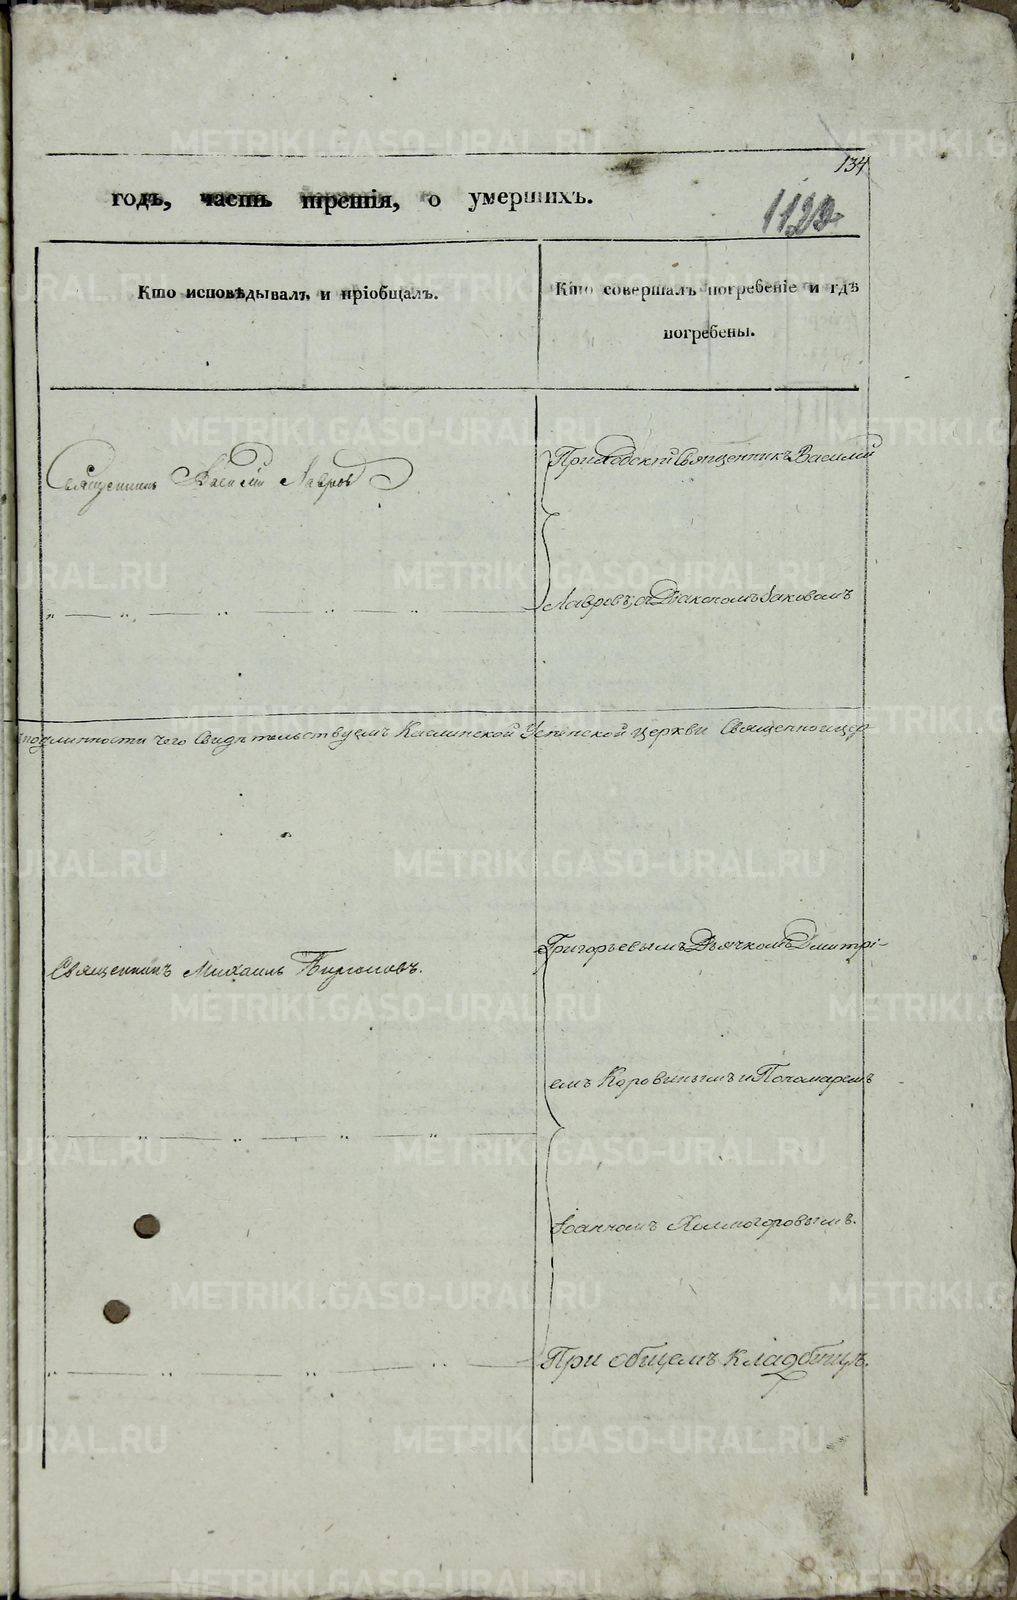 134
годъ, часть третія, о умершихъ.
1122
Кто исповѣдывалъ и пріобщалъ.
Кто совершалъ погребеніе и гдѣ
погребены.
Священникъ Василій Лавровъ
Приходскій Священникъ Василій
Лавровъ, съ Діакономъ Іаковомъ
подлинности чего Свидѣтельствуемъ Каслинской Успенской церкви Священноцер-
Священникъ Михаилъ Бирюковъ.
Григорьевымъ Дьячкомъ Дмитрі-
емъ Коровинымъ и Пономаремъ
Іоанномъ Холмогоровымъ.
При общемъ кладбищѣ.
METRIKI.GASO-URAL.RU